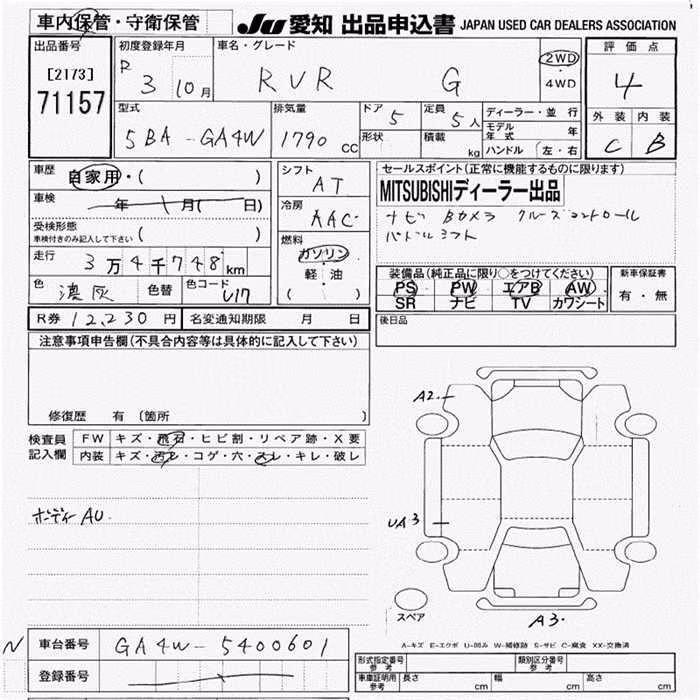 車内保管・守衛保管 JU 愛知 出品申込書 JAPAN USED CAR DEALERS ASSOCIATION
出品番号 初度登録年月 車名・グレード 評価点
[2173] R 3 10月 RVR G 2WD・4WD 4
71157
型式 排気量 ドア 5 定員 5人 ディーラー・並行 外装 内装
5BA-GA4W 1790 CC 形状 積載 kg モデル年式 年 C B
ハンドル (左・右)
車歴 自家用・( ) シフト AT セールスポイント(正常に機能するものに限ります)
車検 年 1月( 日) 冷房 AAC MITSUBISHIディーラー出品
受検形態 ( ) ナビ Bカメラ クルーズコントロール
車検付きのみ記入して下さい 燃料 パドルシフト
走行 3万4千748km ガソリン
軽・油
( )
色 濃灰 色替 色コード U17
装備品(純正品に限り○をつけてください) 新車保証書
PS PW エアB AW 有・無
SR ナビ TV カワシート
R券 12,230 円 名変通知期限 月 日 後日品
注意事項申告欄(不具合内容等は具体的に記入して下さい)
修復歴 有 〔箇所 〕
検査員記入欄 FW キズ・飛石・ヒビ割・リペア跡・X要
内装 キズ・汚レ・コゲ・穴・スレ・キレ・破レ
A2.
ボディAU.
UA3
スペア
A3.
A-キズ E-エクボ U-凹み W-補修跡 S-サビ C-腐食 XX-交換済
N 車台番号 GA4W-5400601
登録番号
型式指定番号 参考 類別区分番号 参考
車庫証明用 参考 長さ cm 幅 cm 高さ cm